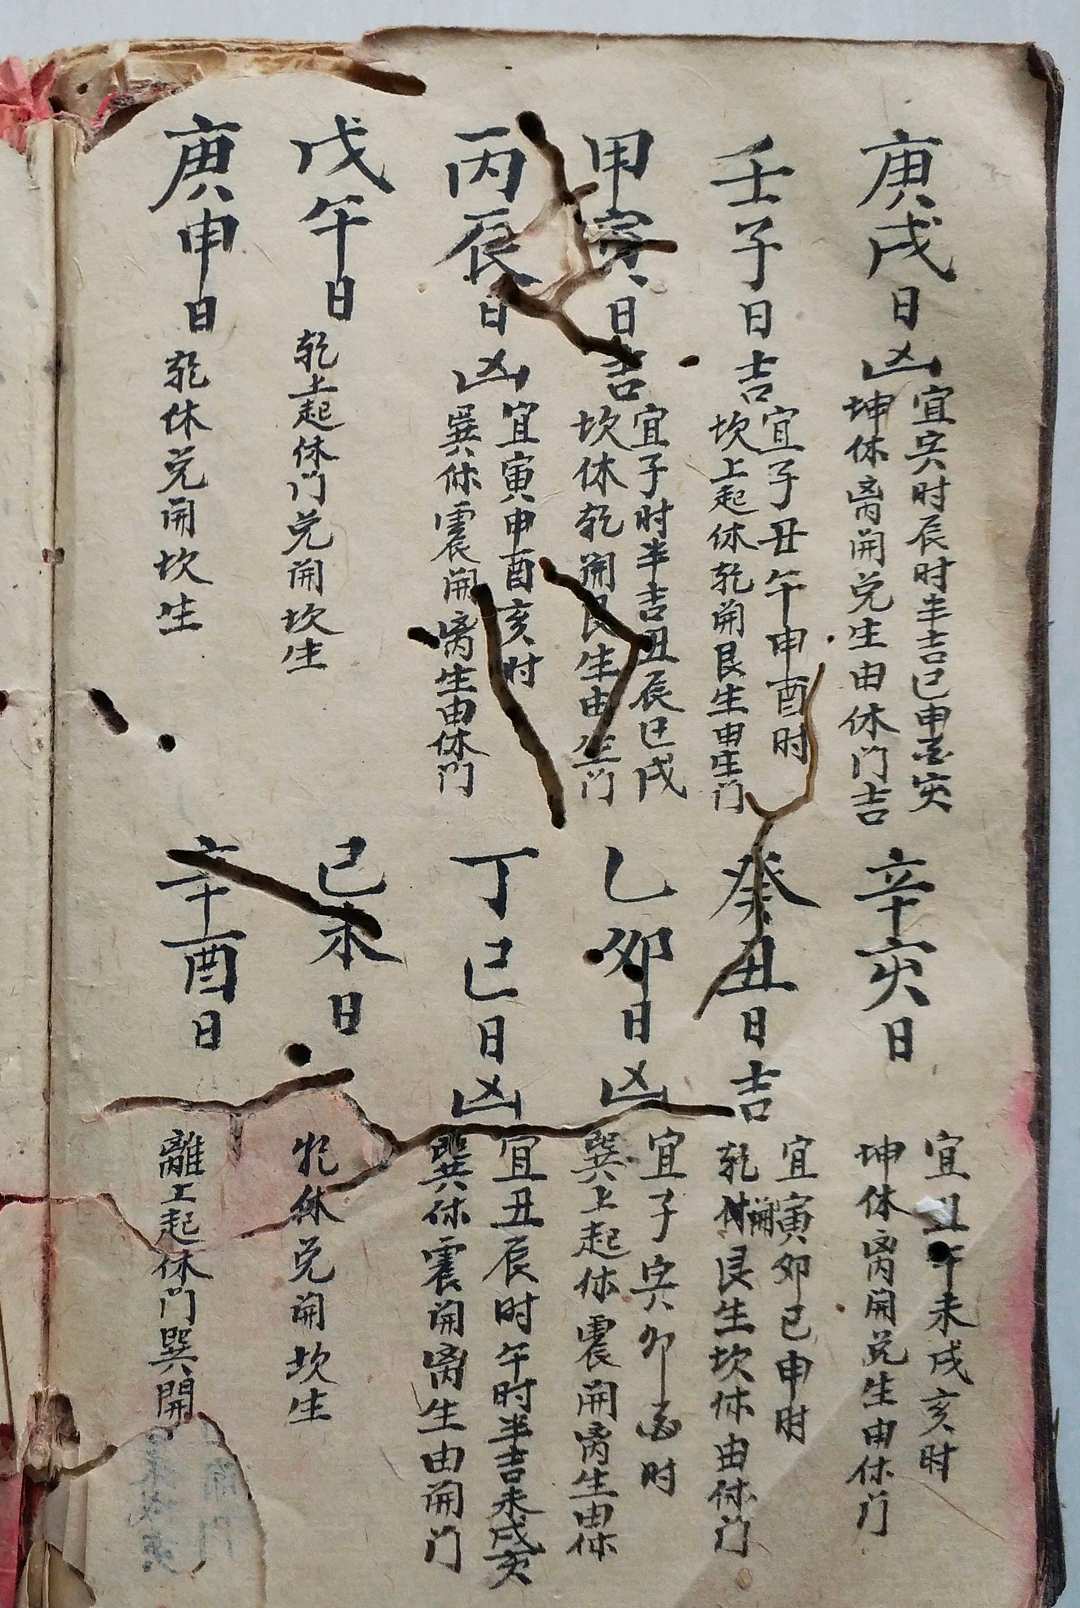 庚戌日凶
宜寅时辰时半吉巳申酉亥
坤休离開兑生由休门吉
辛亥日
宜丑午未戌亥时
坤休离開兑生由休门
壬子日吉
宜子丑午申酉时
坎上起休乾開艮生由生门
癸丑日吉
宜寅卯巳申时
乾開艮生坎休由休门
甲寅日吉
宜子时半吉丑辰巳戌
坎休乾開艮生由生门
乙卯日凶
宜子寅卯酉时
巽上起休震開离生由休
丙辰日凶
宜寅申酉亥时
巽休震開离生由休门
丁巳日凶
宜丑辰时午时半吉未戌亥
巽休震開离生由開门
戊午日
乾上起休门兑開坎生
己未日
乾休兑開坎生
庚申日
乾休兑開坎生
辛酉日
離上起休门巽開